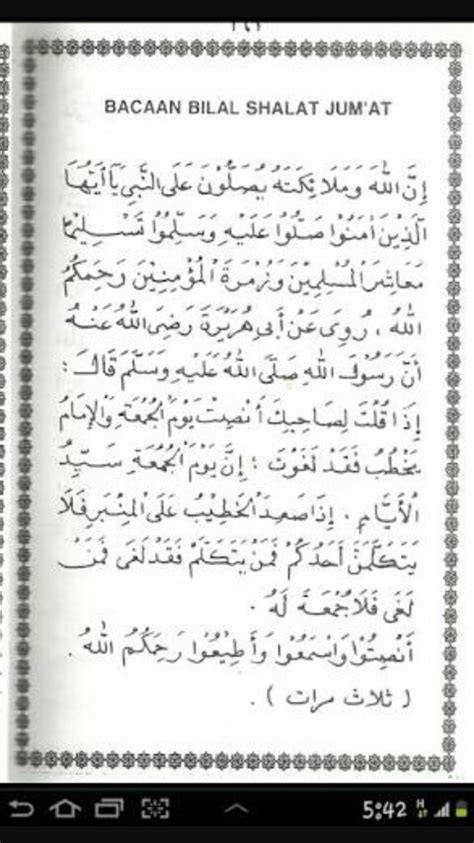 BACAAN BILAL SHALAT JUM'AT
إِنَّ اللهَ وَمَلَائِكَتَهُ يُصَلُّوْنَ عَلَى النَّبِيِّ يَآ أَيُّهَا
الَّذِيْنَ اٰمَنُوْا صَلُّوْا عَلَيْهِ وَسَلِّمُوْا تَسْلِيْمًا
مَعَاشِرَ الْمُسْلِمِيْنَ وَزُمْرَةَ الْمُؤْمِنِيْنَ رَحِمَكُمُ
اللهُ ، رُوِيَ عَنْ أَبِى هُرَيْرَةَ رَضِيَ اللهُ عَنْهُ
أَنَّ رَسُوْلَ اللهِ صَلَّى اللهُ عَلَيْهِ وَسَلَّمَ قَالَ :
إِذَا قُلْتَ لِصَاحِبِكَ أَنْصِتْ يَوْمَ الْجُمُعَةِ وَالْإِمَامُ
يَخْطُبُ فَقَدْ لَغَوْتَ : إِنَّ يَوْمَ الْجُمُعَةِ سَيِّدُ
الْأَيَّامِ . إِذَا صَعِدَ الْخَطِيْبُ عَلَى الْمِنْبَرِ فَلَا
يَتَكَلَّمَنَّ أَحَدُكُمْ فَمَنْ يَتَكَلَّمْ فَقَدْ لَغَى فَمَنْ
لَغَى فَلَا جُمُعَةَ لَهُ .
أَنْصِتُوْا وَاسْمَعُوْا وَأَطِيْعُوْا رَحِمَكُمُ اللهُ .
( ثلاث مرات ) .
5:42